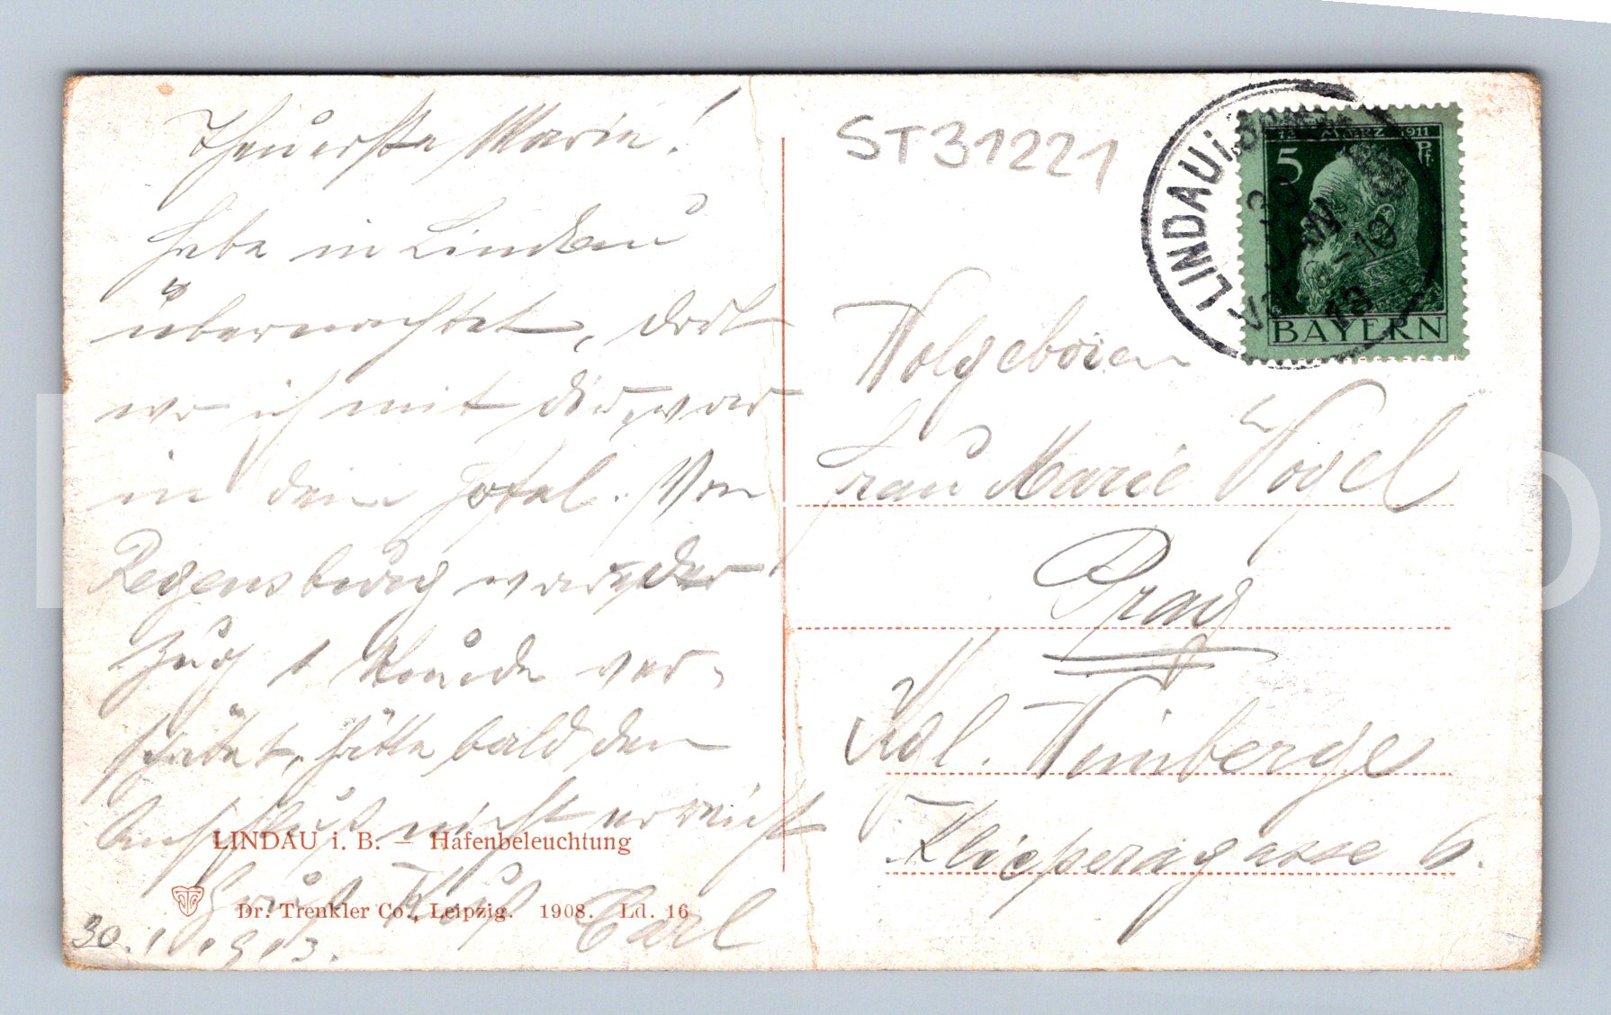 Theuerste Marie!
habe in Lindau
übernachtet, dort
wo ich mit dir war
in dem Hotel. Von
Regensburg war der
Zug 1 Stunde ver-
spätet, hätte bald den
Anschluß nicht erreicht
Gruß Kuß Carl
30. 1913.
LINDAU i. B. — Hafenbeleuchtung
Dr. Trenkler Co., Leipzig. 1908. Ld. 16
ST31221
LINDAU i.
12 MÄRZ 1911
5 Pf.
BAYERN
Wolgeboren
Frau Marie Vogel
Prag
Kgl. Weinberge
Kliceperagasse 6.